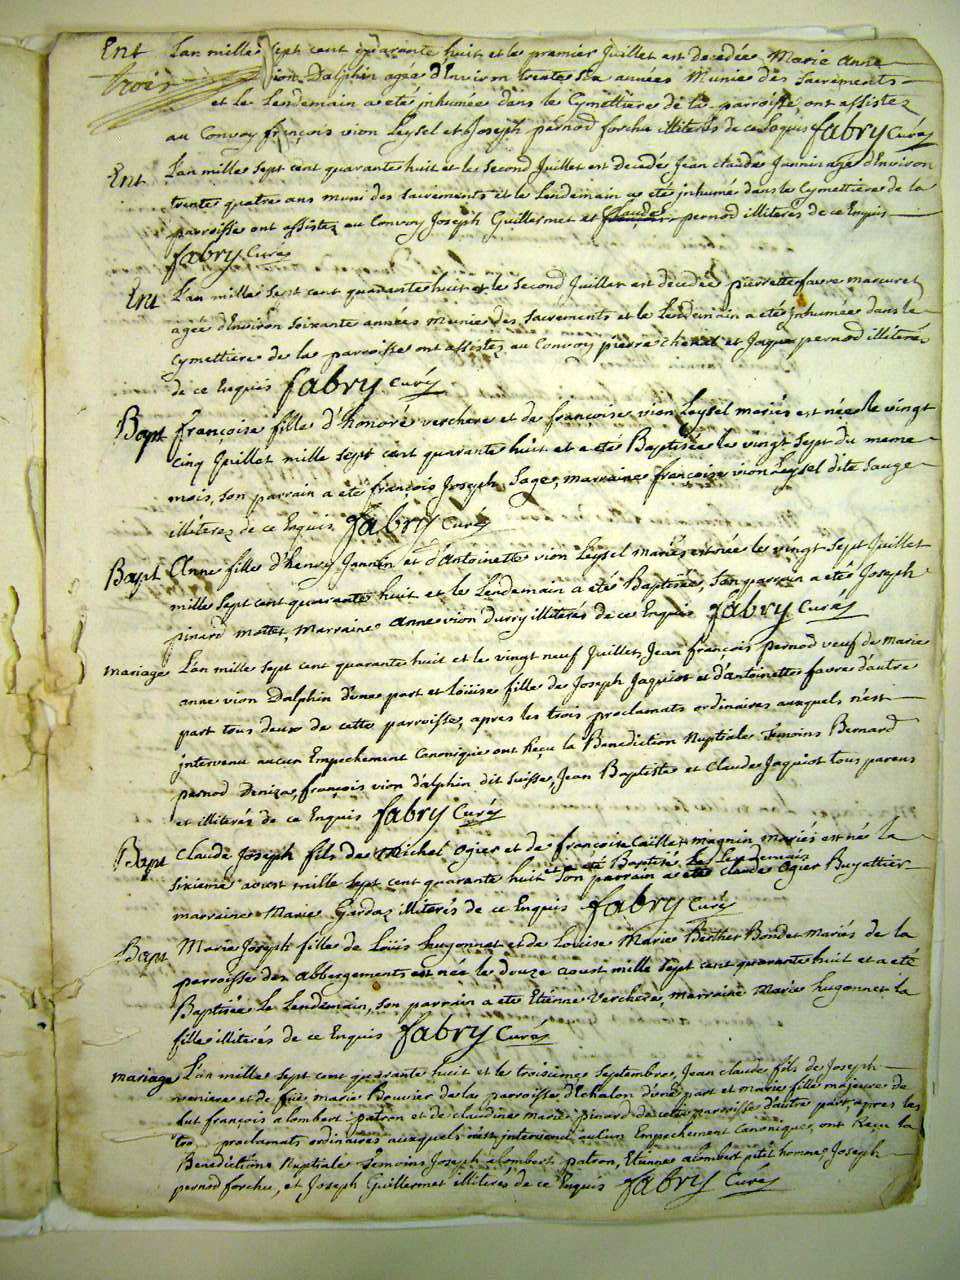 Ent L'an mille sept cent quarante huit et le premier Juillet est decedée Marie Anne
trois vion Dalphin agée d'Environ trente six années Munie des Sacrements
et le Lendemain a eté jnhumée dans le Cymettiere de la parroisse, ont assistez
au Convoy françois vion Leysel et Joseph pernod forchu illiterés de ce Enquis fabry Curé
Ent L'an mille sept cent quarante huit et le second Juillet est decedé Jean claude Jannin agé d'Environ
trente quatre ans muni des sacrements et le Lendemain a eté jnhumé dans le Cymettiere de la
parroisse ont assistez au Convoy Joseph Guillermet et claude pernod illiterés de ce Enquis
fabry Curé
Ent L'an mille sept cent quarante huit et le second Juillet est decedée pierrette favre marcuret
agée d'Environ soixante années munie des sacrements et le Lendemain a eté jnhumée dans le
Cymettiere de la parroisse ont assistez au Convoy pierre chenat et Jaques pernod illiterés
de ce Enquis fabry Curé
Bapt françoise fille d'honoré verchere et de françoise vion Leysel mariés est née le vingt
cinq Juillet mille sept cent quarante huit et a eté Baptisée le vingt sept du meme
mois, son parrain a eté françois Joseph Sage, marraine françoise vion Leysel dite Sauge
illiterez de ce Enquis fabry Curé
Bapt Anne fille d'henry Jannin et d'Antoinette vion Leysel mariés est née le vingt sept Juillet
mille sept cent quarante huit et le Lendemain a eté Baptisée, son parrain a eté Joseph
pinard mottet, Marraine anne vion durry illiterés de ce Enquis fabry Curé
mariage L'an mille sept cent quarante huit et le vingt neuf Juillet, Jean françois pernod veuf de Marie
anne vion Dalphin d'une part et Loüise fille de Joseph Jaquiot et d'antoinette favre d'autre
part tous deux de cette parroisse, apres les trois proclamats ordinaires auxquels n'est
intervenu aucun Empechement Canonique ont Reçu la Benediction Nuptiale témoins Bernard
pernod Deniza, françois vion d'alphin dit Suisse, Jean Baptiste et Claude Jaquiot tous parens
et illiterés de ce Enquis fabry Curé
Bapt Claude Joseph fils de Michel Ogier et de françoise Caillet magnin mariés est né la
et a eté Baptisé le Lendemain
sixieme aoust mille sept cent quarante huit son parrain a eté claude Ogier Buyattier
marraine Marie Gardaz illiterés de ce Enquis fabry Curé
Bapt Marie Joseph fille de Loüis hugonnet et de Louise Marie Berther Bondet Mariés de la
parroisse des abbergements est née le douze aoust mille sept cent quarante huit et a eté
Baptisée le Lendemain, son parrain a eté Etienne Verchere, marraine Marie hugonnet la
fille illiterés de ce Enquis fabry Curé
mariage L'an mille sept cent quarante huit et le troisieme Septembre, Jean claude fils de Joseph
veniere et de füe marie Bouvier de la parroisse d'Echalon d'une part et marie fille majeure de
fut françois alombert patron et de claudine marie pinard de cette parroisse d'autre part, apres les
trois proclamats ordinaires auxquels n'est intervenu aucun Empechement canonique, ont Reçu la
Benediction Nuptiale témoins Joseph alombert patron, Etienne alombert petit homme, Joseph
pernod forchu, et Joseph Guillermet illiterés de ce Enquis fabry Curé